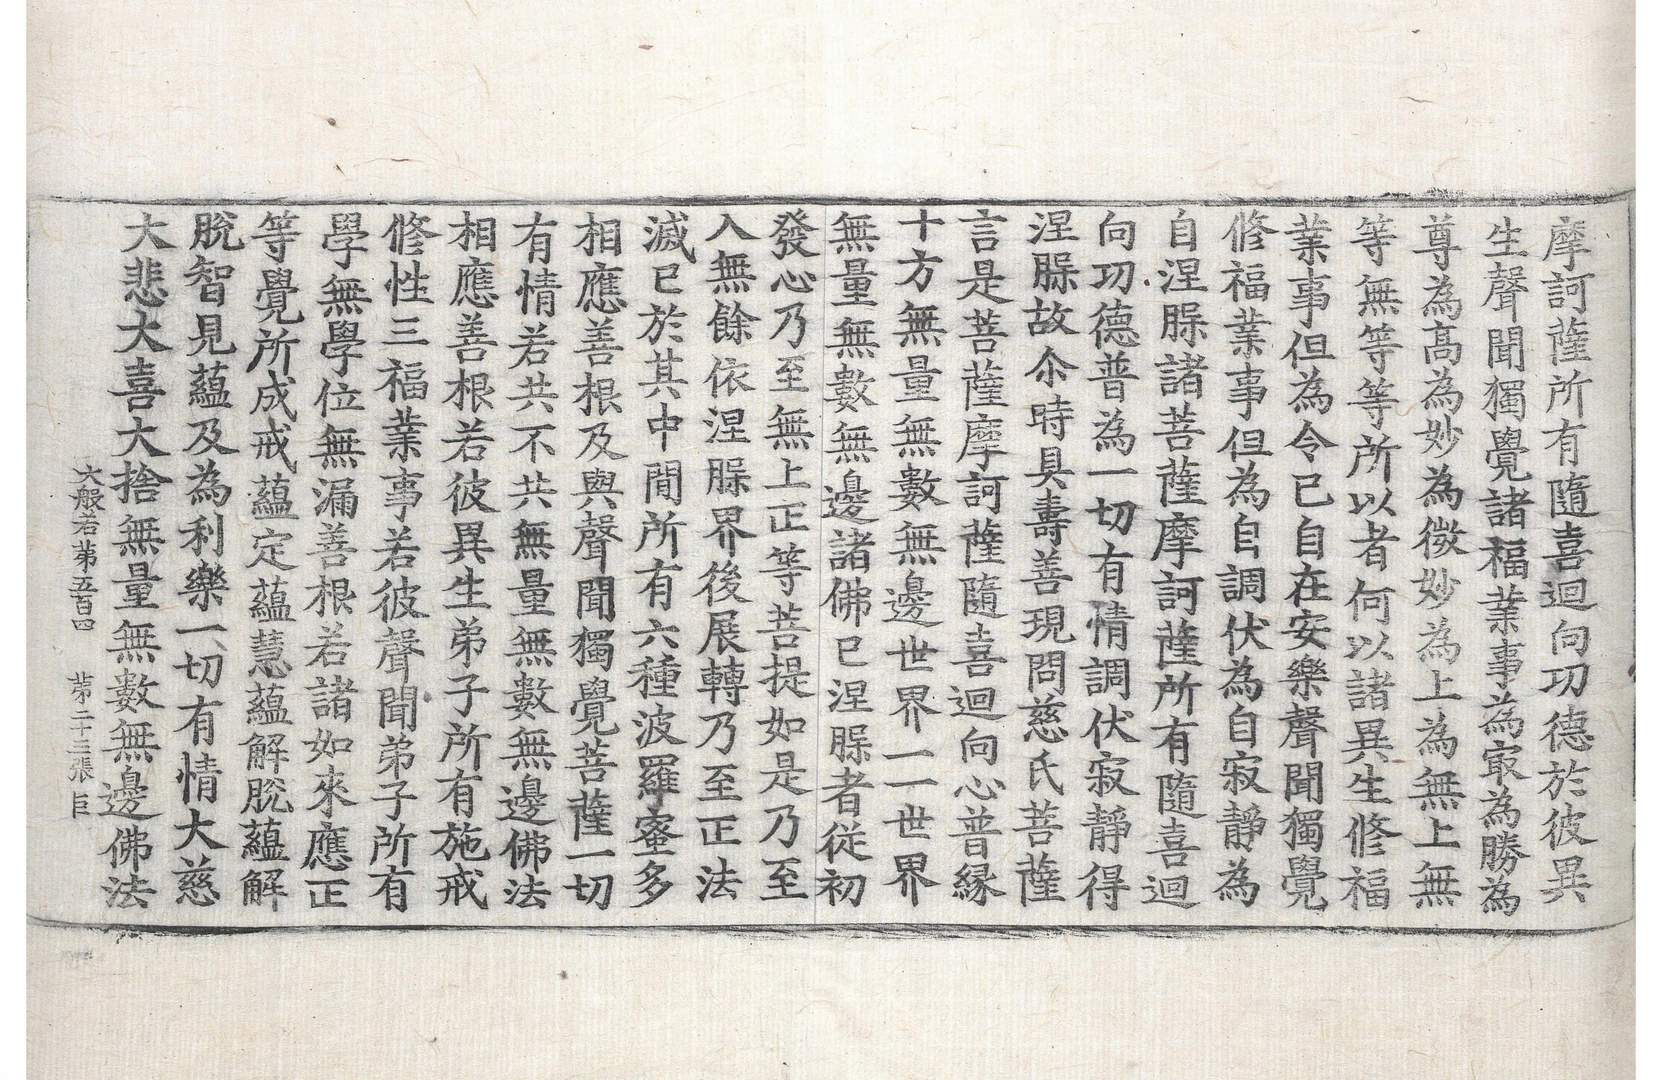 摩訶薩所有隨喜迴向功德於彼異
生聲聞獨覺諸福業事為㝡為勝為
尊為高為妙為微妙為上為無上無
等無等等所以者何以諸異生修福
業事但為令己自在安樂聲聞獨覺
修福業事但為自調伏為自寂靜為
自涅槃諸菩薩摩訶薩所有隨喜迴
向功德普為一切有情調伏寂靜得
涅槃故尒時具壽善現問慈氏菩薩
言是菩薩摩訶薩隨喜迴向心普緣
十方無量無數無邊世界一一世界
無量無數無邊諸佛已涅槃者從初
發心乃至無上正等菩提如是乃至
入無餘依涅槃界後展轉乃至正法
滅已於其中閒所有六種波羅蜜多
相應善根及與聲聞獨覺菩薩一切
有情若共不共無量無數無邊佛法
相應善根若彼異生弟子所有施戒
修性三福業事若彼聲聞弟子所有
學無學位無漏善根若諸如來應正
等覺所成戒蘊定蘊慧蘊解脫蘊解
脫智見蘊及為利樂一切有情大慈
大悲大喜大捨無量無數無邊佛法
大般若第五百四 第二十三張 巨